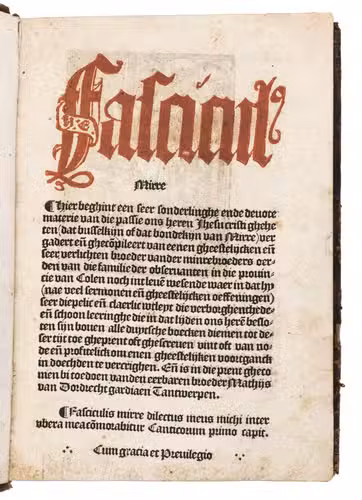 Fasciculꝰ
Mirre
¶ Hier beghint een seer sonderlinghe ende deuote
materie van die passie ons heren Jhesu cristi ghehe
ten (dat busselkijn of dat bondekijn van Mirre) ver
gadert eñ ghecõpileert van eenen gheestelijcken eñ
seer verlichten broeder vander minrebroeders oer-
den van die familie der obseruanten in die prouin-
cie van Colen noch int leuē wesende waer in dat hy
(nae veel sermonen eñ gheestelijcken oeffeningen)
seer diepelic eñ claerlic wtleyt die verborghenthede
eñ schoon leeringhe die in dat lijden ons herē beslo-
ten sijn bouen alle duytsche boecken diemen tot de-
ser tijt toe gheprent oft ghescreuen vint oft van no-
de eñ profitelick om enen gheestelijken voortganck
in doechden te vercrighen. Eñ is in die prent gheco-
men bi toedoen vanden eerbaren broeder Mathijs
van Dordrecht gardiaen Tantwerpen.
¶ Fasciculus mirre dilectus meus michi inter
vbera mea cõmorabitur Canticorum primo capit.
Cum gracia et Preuilegio